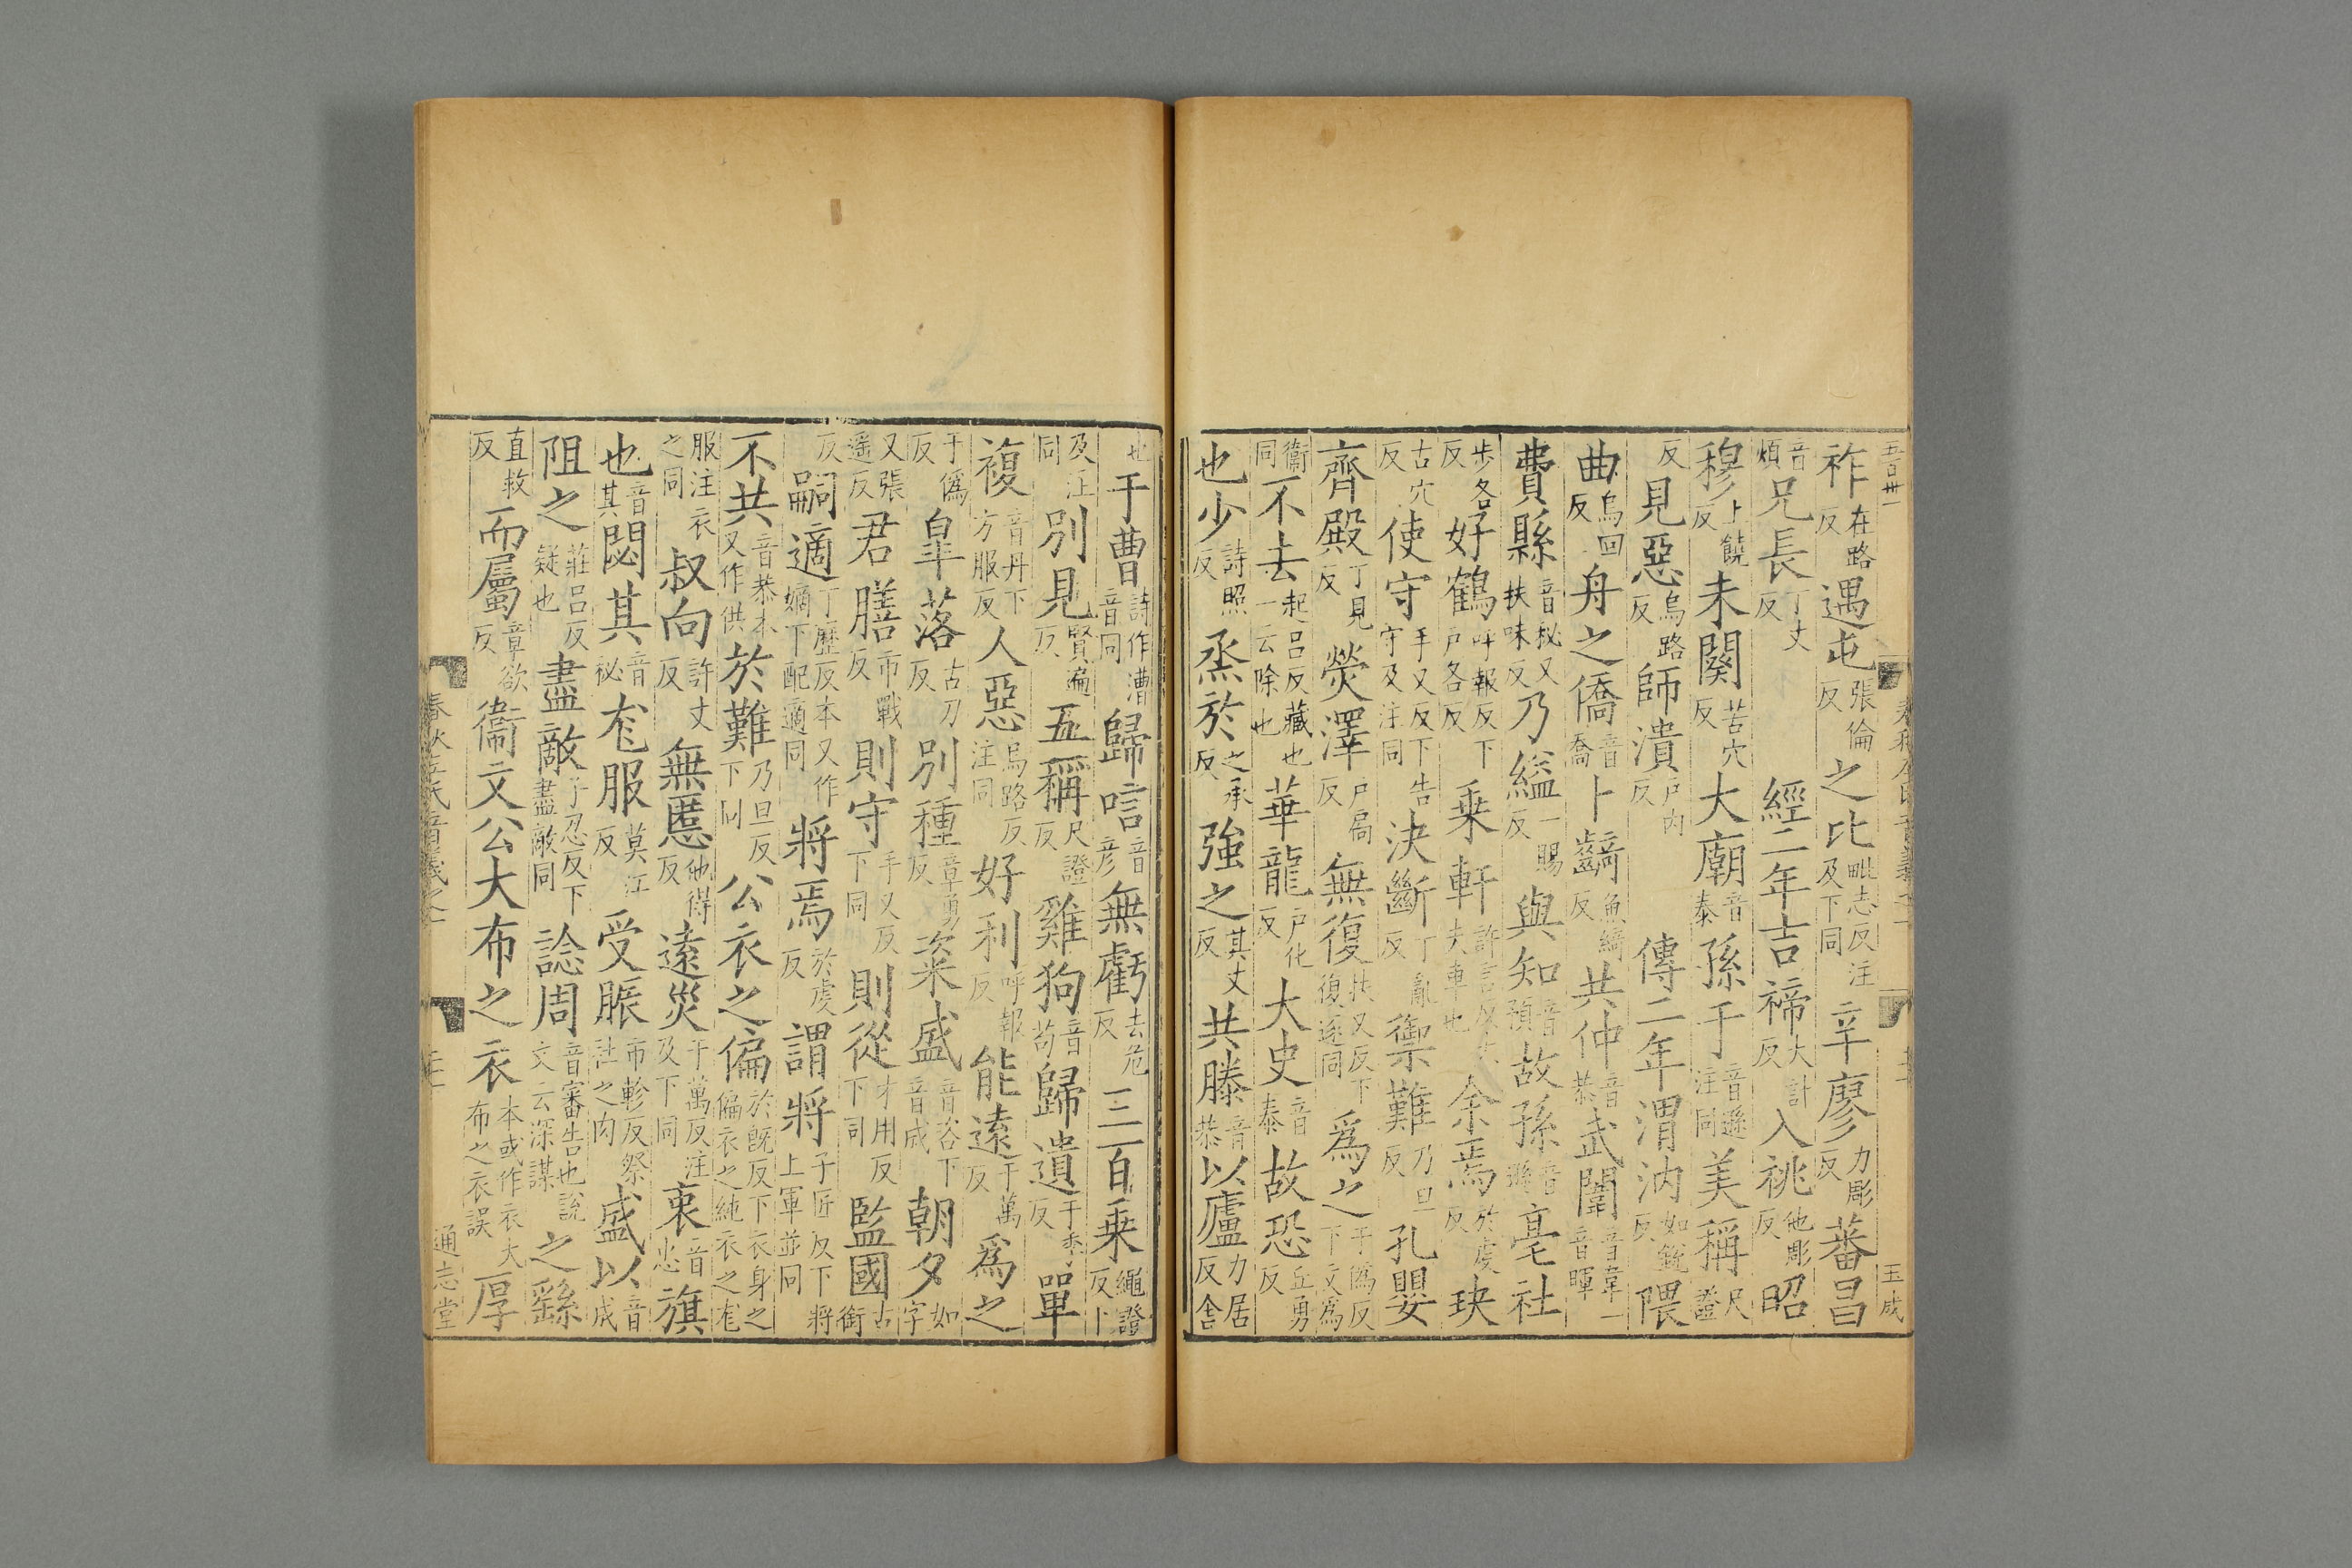 祚在路反遇屯張倫反之比毗志反注及下同辛廖力彫反蕃昌
音煩兄長丁丈反 經二年吉禘大計反入祧他彫反昭
穆上饒反未闋苦穴反大廟音泰孫于音遜注同美稱尺證
反見惡烏路反師潰戶內反 傳二年渭汭如銳反隈
烏回反曲舟之僑音喬卜齮魚綺反共仲音恭武闈音韋一音暉
費縣音祕又扶味反乃縊一賜反與知音預故孫音遜亳社
步各反好鶴呼報反下戶各反乘軒許言反大夫車也余焉於虔反玦
古穴反使守手又反下告守及注同決斷丁亂反禦難乃旦反孔嬰
齊殿丁見反熒澤戶扃反無復扶又反下復逐同爲之于僞反下文爲
衞同不去起呂反藏也一云除也華龍戶化反大史音泰故恐丘勇反
也少詩照反烝於之承反強之其丈反共滕音恭以廬力居反舍
也于曹詩作漕音同歸唁音彥無虧去危反三百乘繩證反下
及注同別見賢遍反五稱尺證反雞狗音苟歸遺于季反單
複音丹下方服反人惡烏路反注同好利呼報反能遠于萬反爲之
于僞反皐落古刀反別種章勇反粢盛音咨下音成朝夕如字
又張遥反君膳市戰反則守手又反下同則從才用反下同監國古銜
反嗣適丁歷反本又作嫡下配適同將焉於虔反謂將子匠反下將上軍並同
不共音恭本又作供於難乃旦反下同公衣之偏於旣反下衣身之偏衣之純衣之尨
服注衣之同叔向許丈反無慝他得反遠災于萬反注及下同衷音忠旗
也音其閟其音祕尨服莫江反受脤市軫反祭社之肉盛以音成
阻之莊呂反疑也盡敵子忍反下盡敵同諗周音審告也說文云深謀之繇
直救反而屬章欲反衞文公大布之衣本或作衣大布之衣誤厚
春秋左氏音義之一
通志堂